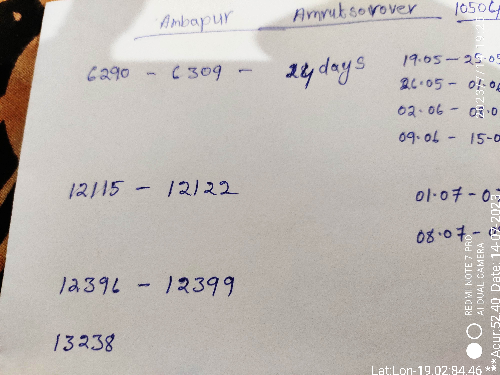 Ambapur Amrutsorover 10506/
6290 - 6309 - 24 days 19.05 - 25.05
26.05 - 01.06
02.06 - 08.0
09.06 - 15.0
12115 - 12122 01.07 - 07
08.07 -
12396 - 12399
13238
REDMI NOTE 7 PRO
AI DUAL CAMERA
Lat:Lon-19.02:84.46